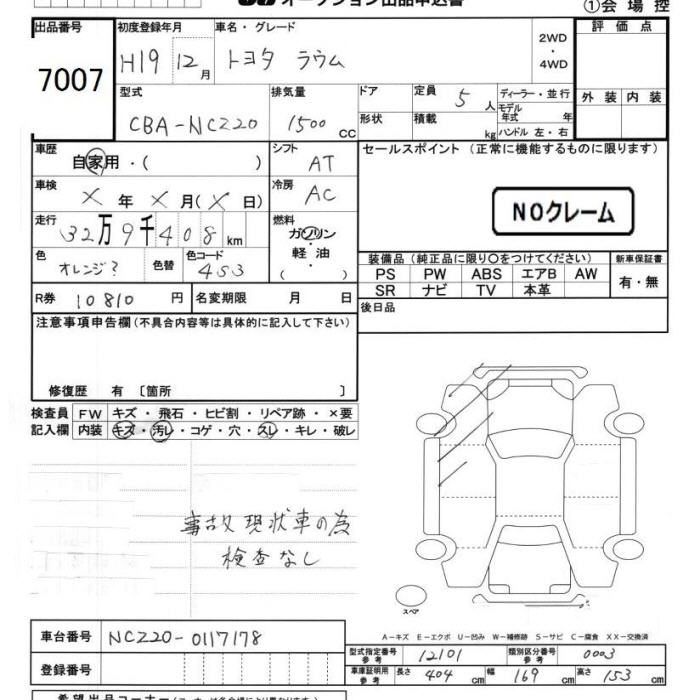 オークション出品申込書
①会場控
出品番号 初度登録年月 車名・グレード 2WD・4WD 評価点
7007 H19 12月 トヨタ ラウム
型式 排気量 ドア 定員 5人 ディーラー・並行 外装 内装
CBA-NCZ20 1500CC 形状 積載 kg モデル年式 年 ハンドル 左・右
車歴 自家用・( ) シフト AT セールスポイント(正常に機能するものに限ります)
車検 X年X月(X日) 冷房 AC
NOクレーム
走行 32万9千408km 燃料 ガソリン
軽油
( )
色 オレンジ? 色替 色コード 4S3 装備品(純正品に限り〇をつけてください) 新車保証書
PS PW ABS エアB AW 有・無
SR ナビ TV 本革
R券 10810円 名変期限 月 日 後日品
注意事項申告欄(不具合内容等は具体的に記入して下さい)
修復歴 有 〔箇所 〕
検査員 FW キズ・飛石・ヒビ割・リペア跡・×要
記入欄 内装 キズ・汚レ・コゲ・穴・スレ・キレ・破レ
事故現状車の為
検査なし
スペア
A-キズ E-エクボ U-凹み W-補修跡 S-サビ C-腐食 XX-交換済
車台番号 NCZ20-0117178 型式指定番号 参考 12101 類別区分番号 参考 0003
登録番号 車庫証明用 参考 長さ 404cm 幅 169cm 高さ 153cm
希望出品コーナー